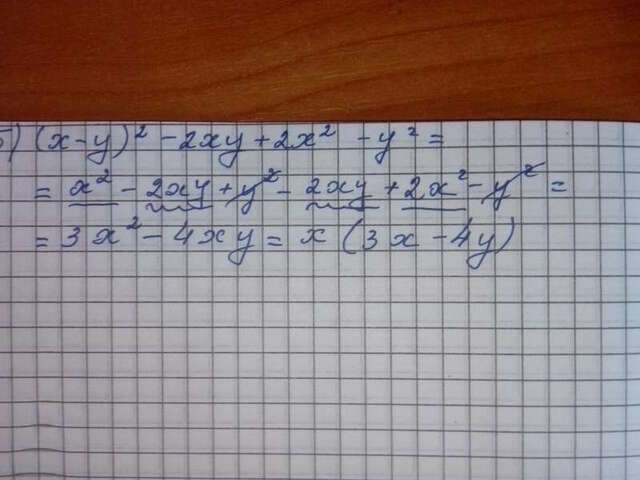 б) (x-y)² - 2xy + 2x² - y² =
= x² - 2xy + y² - 2xy + 2x² - y² =
= 3x² - 4xy = x (3x - 4y)